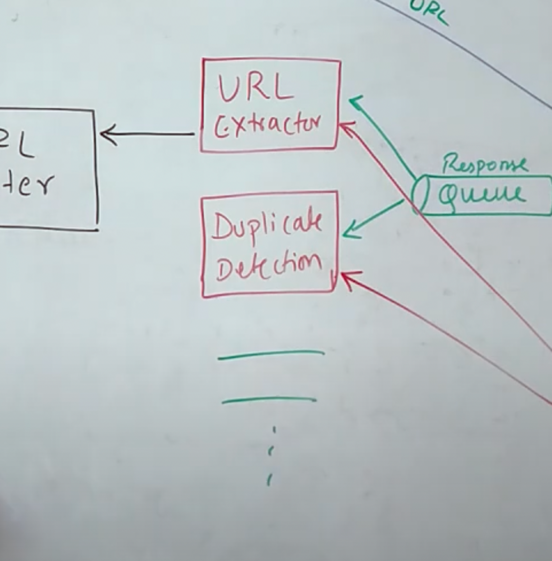 URL
URL
Extractor
Response
Queue
Duplicate
Detection